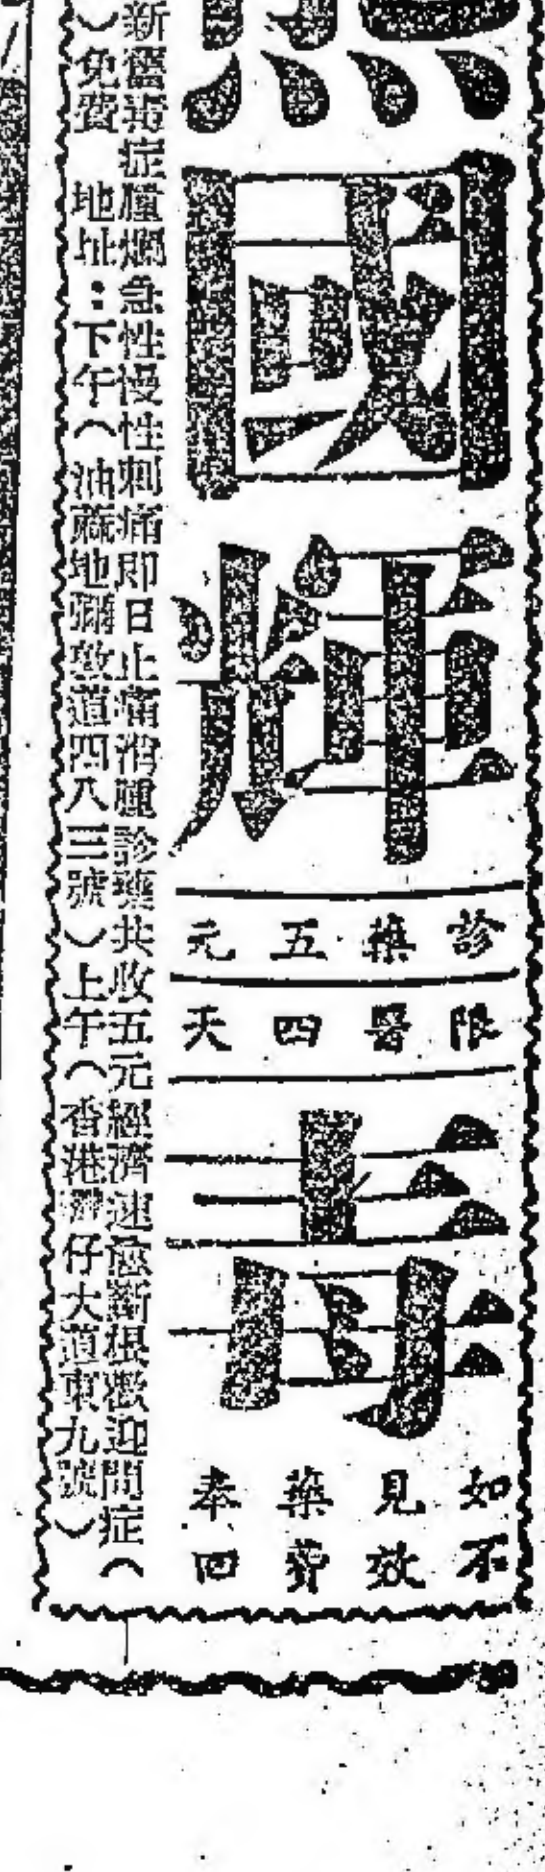 國輝
診藥五元
限醫四天
毒
如不見效藥費奉回
新舊毒症腫爛急性慢性刺痛即日止痛消腫診藥共收五元經濟速愈斷根歡迎問症（
）免費 地址：下午（油蔴地彌敦道四八三號）上午（香港灣仔大道東九號）